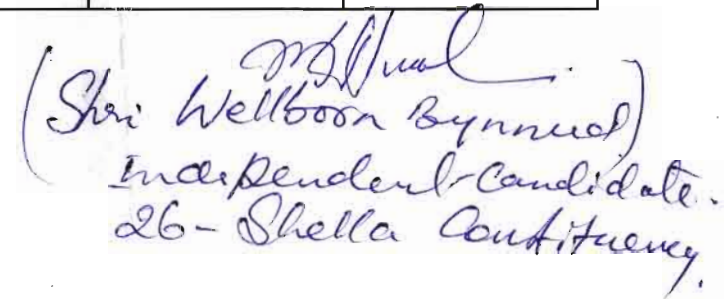 (Shri Wellborn Bynnud)
Independent Candidate.
26 - Shella Constituency.